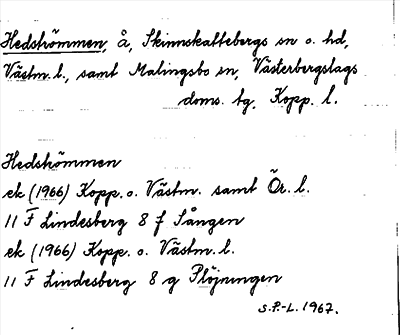 Hedströmmen, å, Skinnskattebergs sn o. hd,
Västm. l., samt Malingsbo sn, Västerbergslags
doms. tg, Kopp. l.
Hedströmmen
ek (1966) Kopp. o. Västm. samt Ör. l.
11 F Lindesberg 8 f Sången
ek (1966) Kopp. o. Västm. l.
11 F Lindesberg 8 g Plöjningen
S.P.-L. 1967.